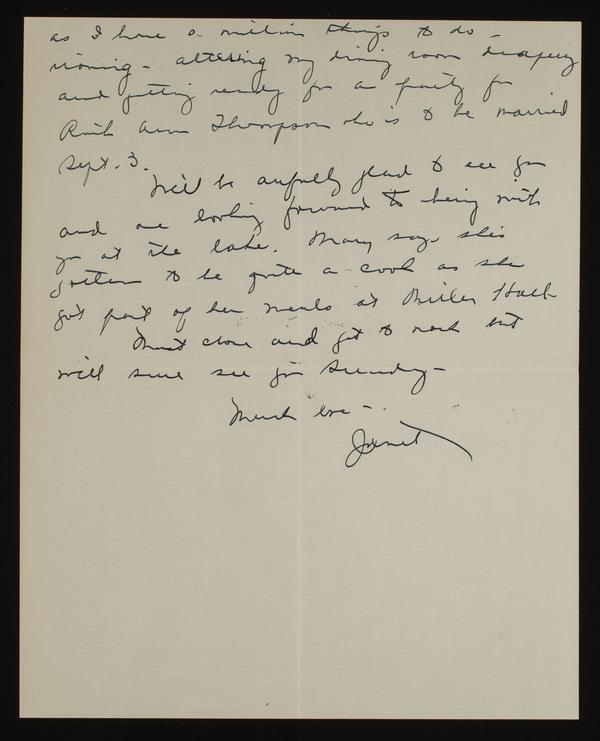 as I have a million things to do -
ironing - altering my dining room drapery
and getting ready for a party for
Ruth Ann Thompson who is to be married
Sept. 3.
We'll be awfully glad to see you
and are looking forward to being with
you at the lake. Mary says she's
gotten to be quite a cook as she
got part of her meals at Miller Hall
Must close and get to work but
will sure see you Sunday -
Much love -
Janet